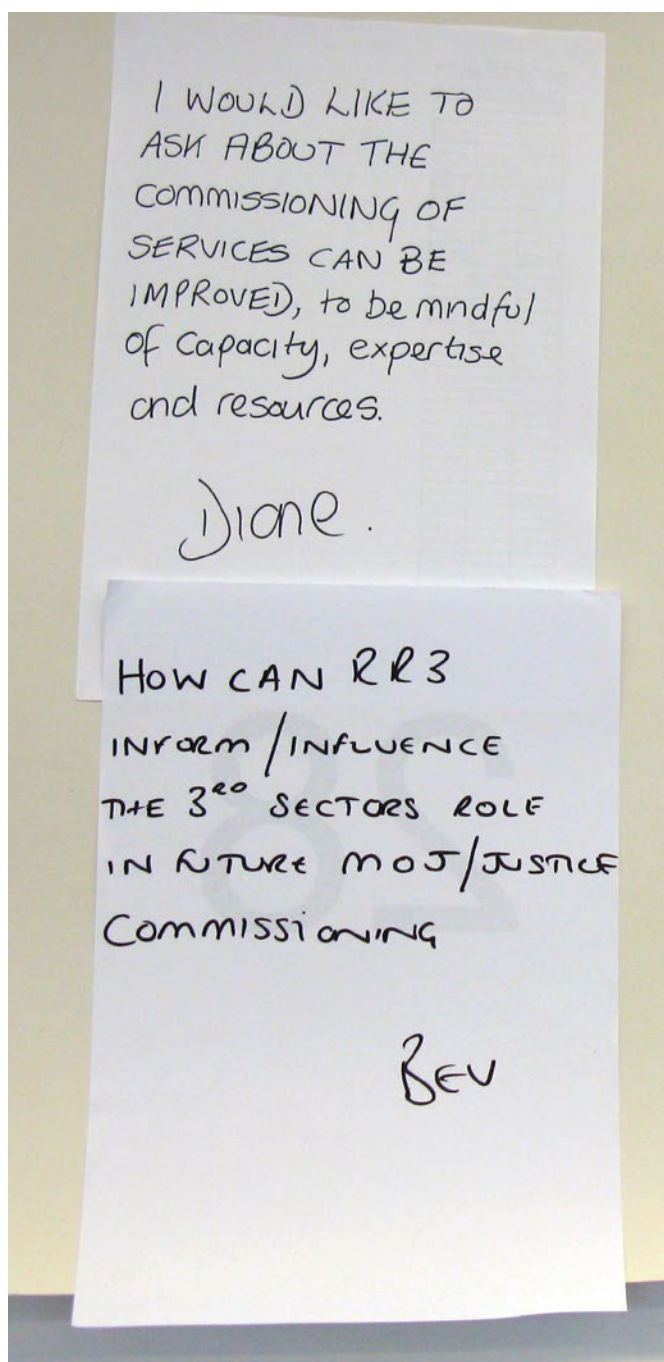 I WOULD LIKE TO
ASK ABOUT THE
COMMISSIONING OF
SERVICES CAN BE
IMPROVED, to be mindful
of capacity, expertise
and resources.
Diane.
HOW CAN RR3
INFORM/INFLUENCE
THE 3RD SECTORS ROLE
IN FUTURE MOJ/JUSTICE
COMMISSIONING
BEV
28